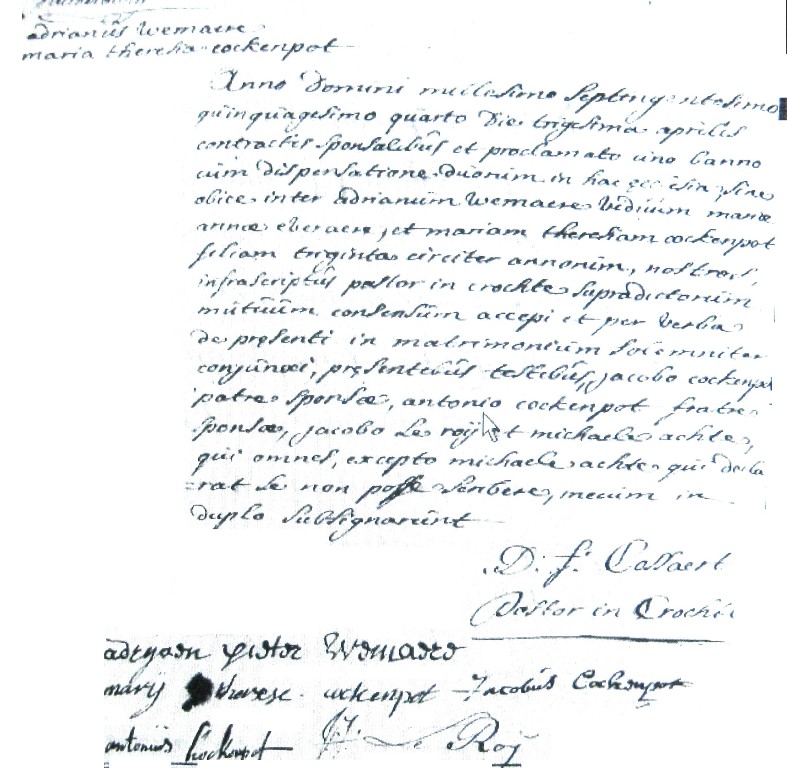 adrianus wemaere
maria theresia cockenpot
Anno Domini millesimo septingentesimo
quinquagesimo quarto die trigesima aprilis
contractis sponsalibus et proclamato uno banno
cum dispensatione duorum in hac ecclesia, sine
obice inter adrianum wemaere viduum mariæ
annæ eberaere, et mariam theresiam cockenpot
filiam triginta circiter annorum,
infrascriptus pastor in crochte supradictorum
mutuum consensum accepi et per verba
de presenti in matrimonium solemniter
conjunxi, presentibus testibus, jacobo cockenpot
patre sponsæ, antonio cockenpot fratre
sponsæ, jacobo le roij et michaele achte,
qui omnes, excepto michaele achte qui decla
=rat se non posse scribere, mecum in
duplo subsignarunt
D. f. Cassaert
Pastor in Crochte
adryaen pieter Wemaere
marij therese cockenpot Jacobus Cockenpot
antonius Cockenpot J. J. Le Roij